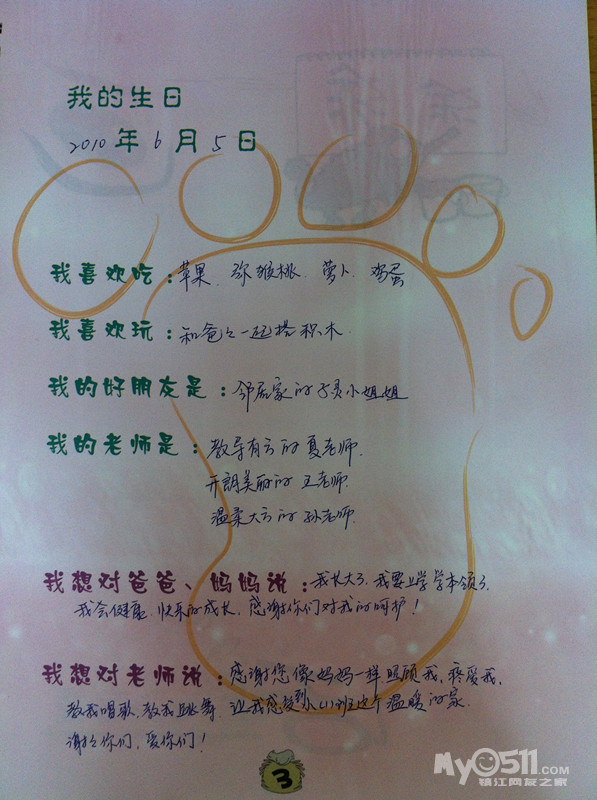 我的生日
2010年6月5日
我喜欢吃：苹果、弥猴桃、萝卜、鸡蛋
我喜欢玩：和爸爸一起搭积木
我的好朋友是：邻居家的子灵小姐姐
我的老师是：教导有方的夏老师.
开朗美丽的王老师.
温柔大方的孙老师.
我想对爸爸、妈妈说：我长大了.我要上学学本领了.
我会健康.快乐的成长.感谢你们对我的呵护！
我想对老师说：感谢您像妈妈一样照顾我.疼爱我.
教我唱歌.教我跳舞.让我感受到小(1)班这个温暖的家.
谢谢你们.爱你们！
3
My0511.com
镇江网友之家